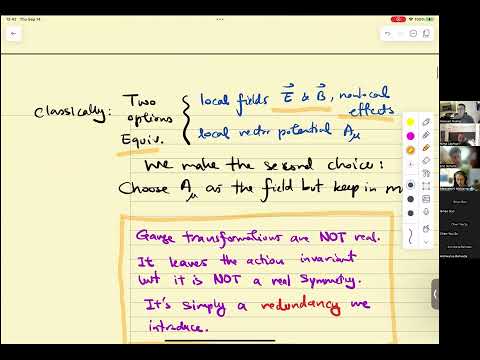 12:42 Thu Sep 14
100%
Classically: Two options Equiv.
local fields E & B, nonlocal effects
local vector potential Aμ
We make the second choice:
Choose Aμ as the field but keep in m
Gauge transformations are NOT real.
It leaves the action invariant
but it is NOT a real symmetry.
It's simply a redundancy we
introduce.